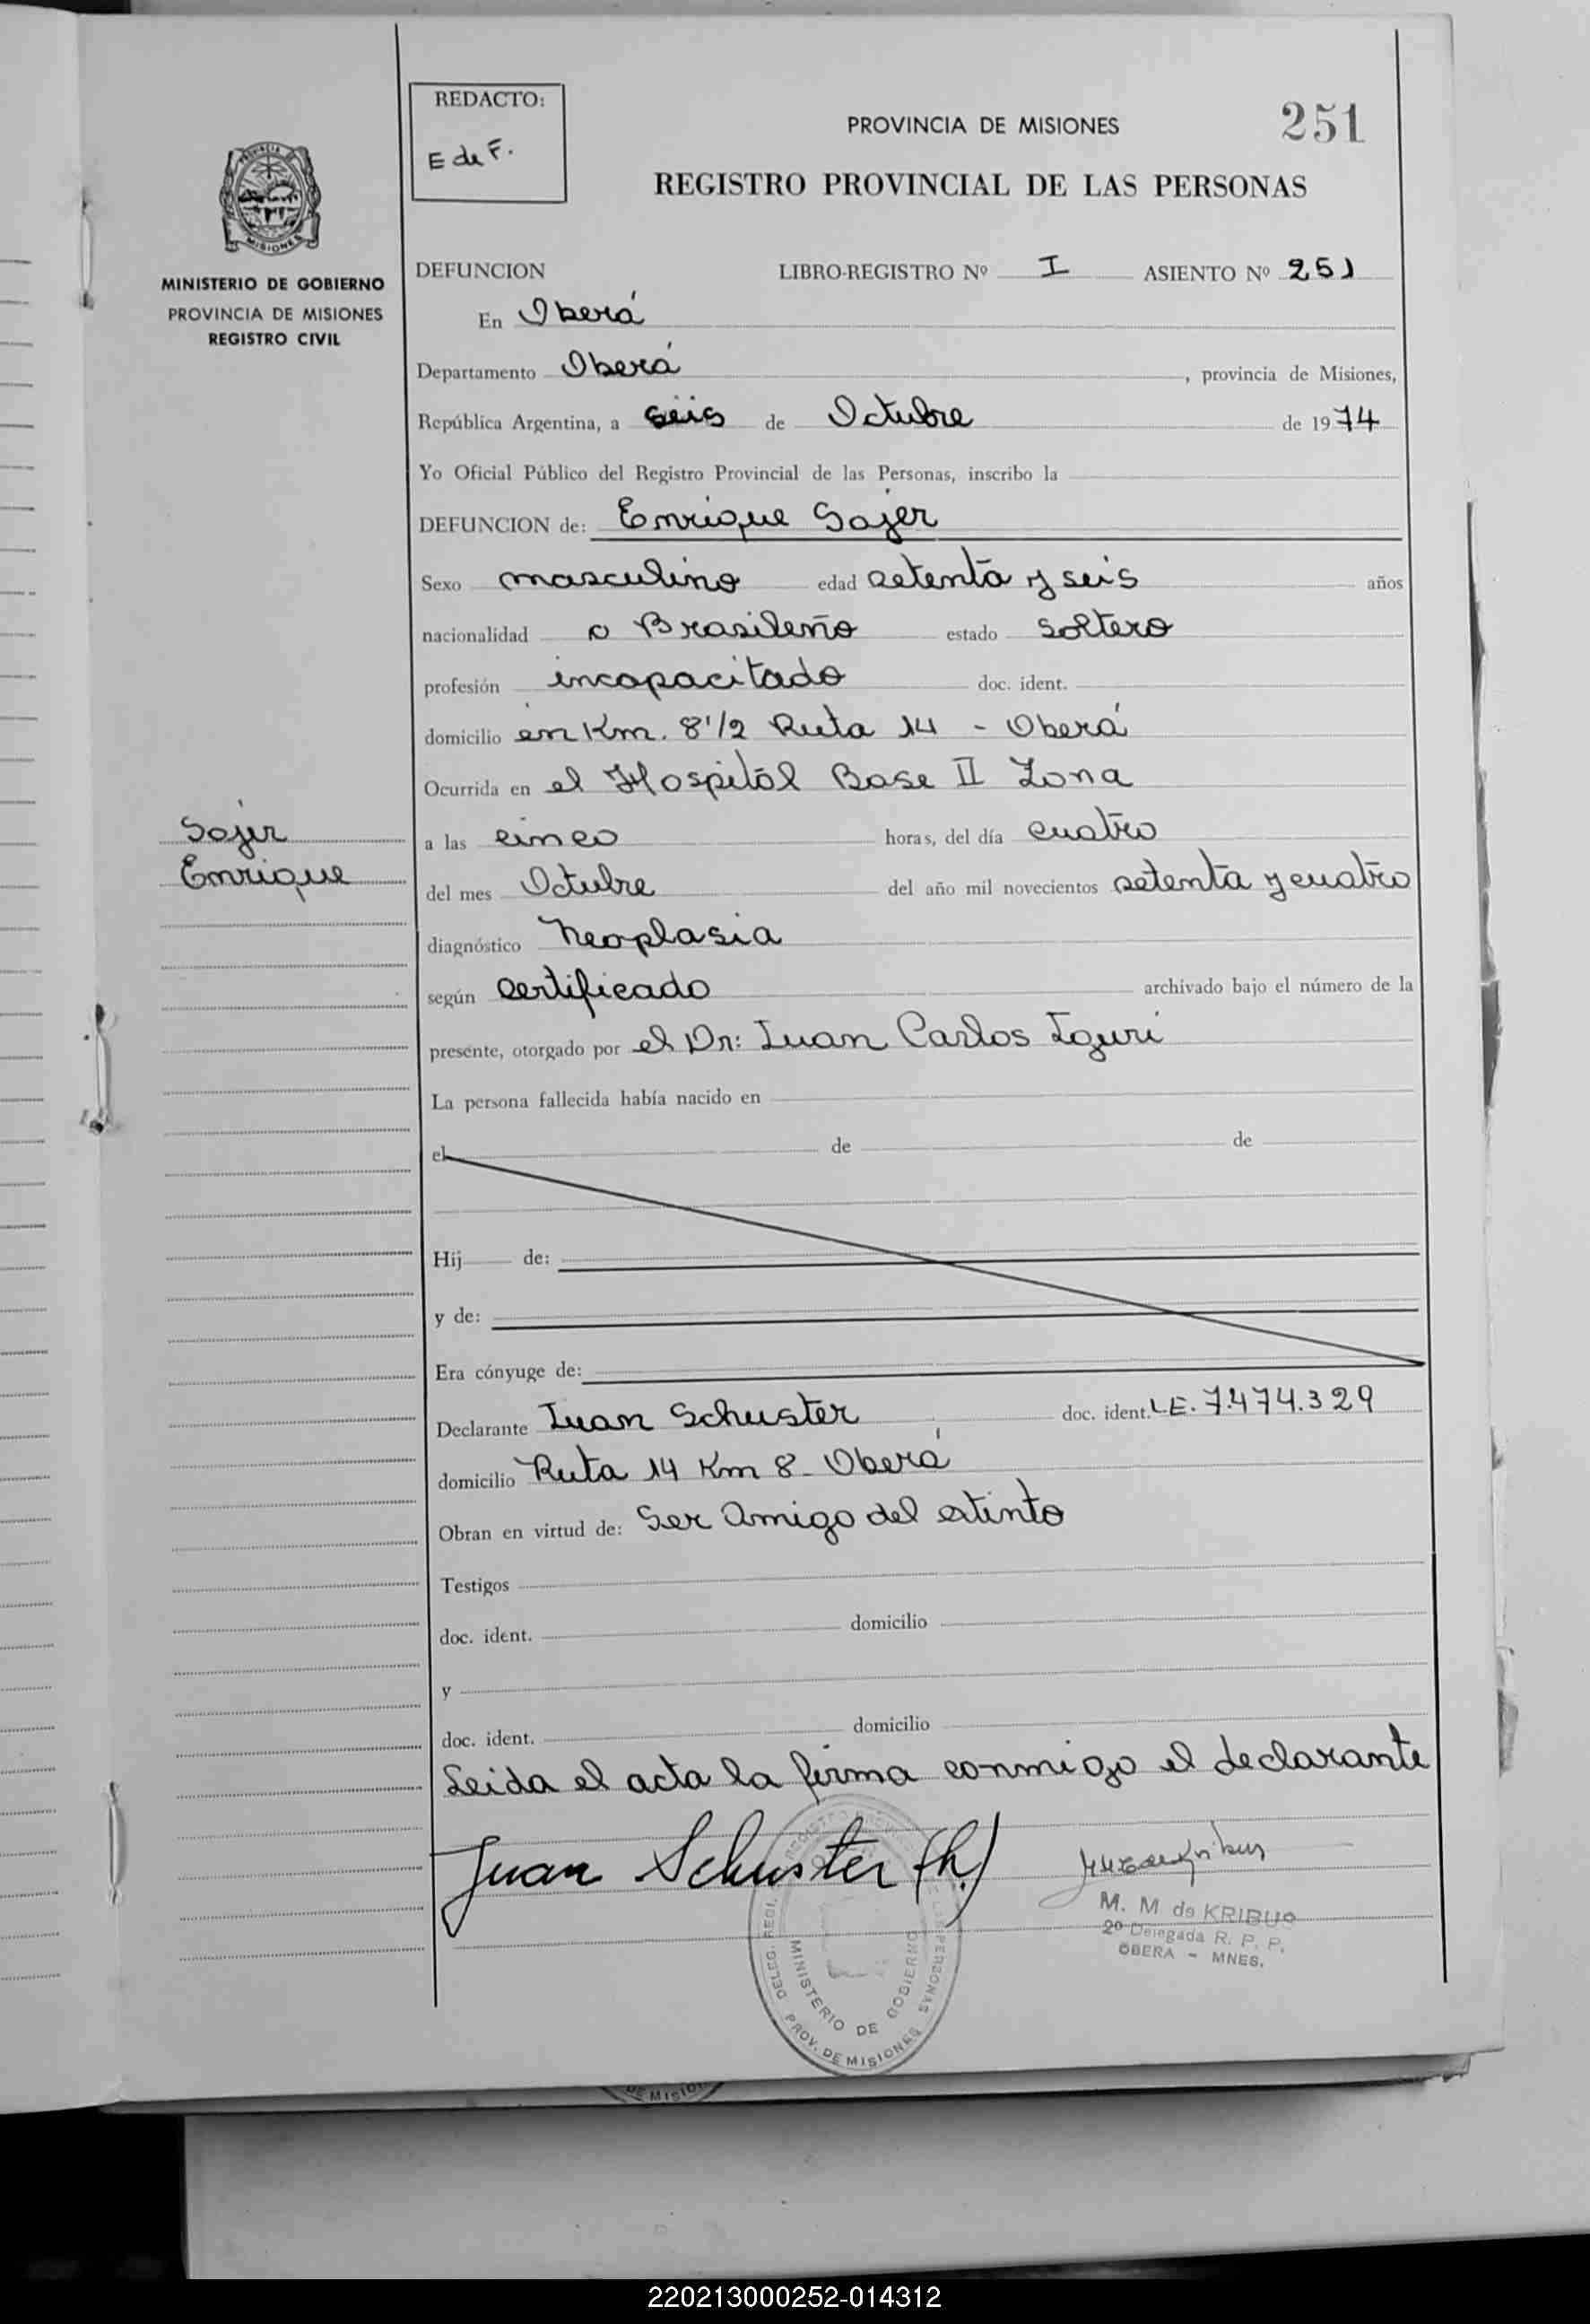 REDACTO:
E de F.
PROVINCIA DE MISIONES
251
REGISTRO PROVINCIAL DE LAS PERSONAS
MINISTERIO DE GOBIERNO
PROVINCIA DE MISIONES
REGISTRO CIVIL
DEFUNCION LIBRO-REGISTRO Nº I ASIENTO Nº 251
En Oberá
Departamento Oberá, provincia de Misiones,
República Argentina, a seis de Octubre de 1974
Yo Oficial Público del Registro Provincial de las Personas, inscribo la
DEFUNCION de: Enrique Sajer
Sexo masculino edad setenta y seis años
nacionalidad o Brasileño estado soltero
profesión incapacitado doc. ident.
domicilio en Km. 8 1/2 Ruta 14 - Oberá
Ocurrida en el Hospital Base II Zona
Sajer
Enrique
a las cinco horas, del día cuatro
del mes Octubre del año mil novecientos setenta y cuatro
diagnóstico Neoplasia
según certificado archivado bajo el número de la
presente, otorgado por el Dr: Juan Carlos Iguri
La persona fallecida había nacido en
el de de
Hij de:
y de:
Era cónyuge de:
Declarante Juan Schuster doc. ident. L.E. 7.474.329
domicilio Ruta 14 Km 8 - Oberá
Obran en virtud de: Ser Amigo del extinto
Testigos
doc. ident. domicilio
y
doc. ident. domicilio
Leida el acta la firma conmigo el declarante
Juan Schuster (h.)
M. M de KRIBUS
2º Delegada R. P. P.
OBERA - MNES.
DELEG. REGI. PERSONAS
MINISTERIO DE GOBIERNO
PROV. DE MISIONES
DE MISIO
220213000252-014312